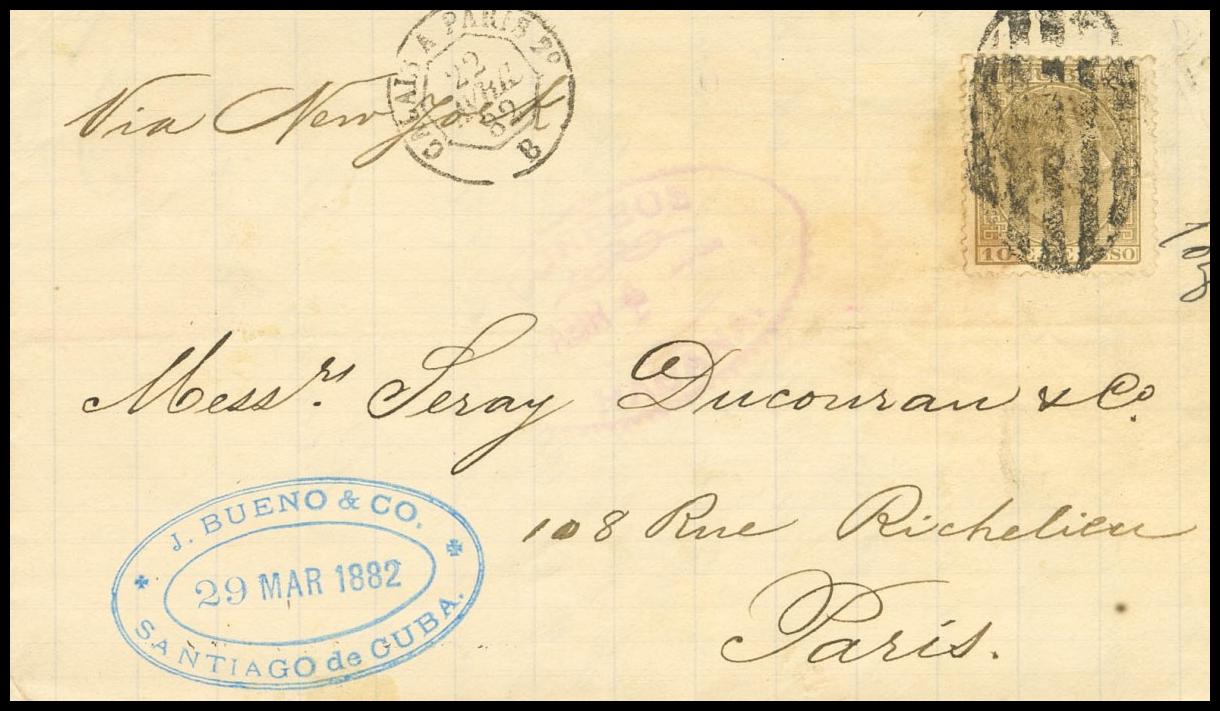 CALAIS A PARIS 2º
22
AVRIL
82
8
Via New York
CUBA
10 C. DE PESO
108
Mess.rs Seray Ducouran & Co.
108 Rue Richelieu
Paris.
J. BUENO & CO.
29 MAR 1882
SANTIAGO de CUBA.